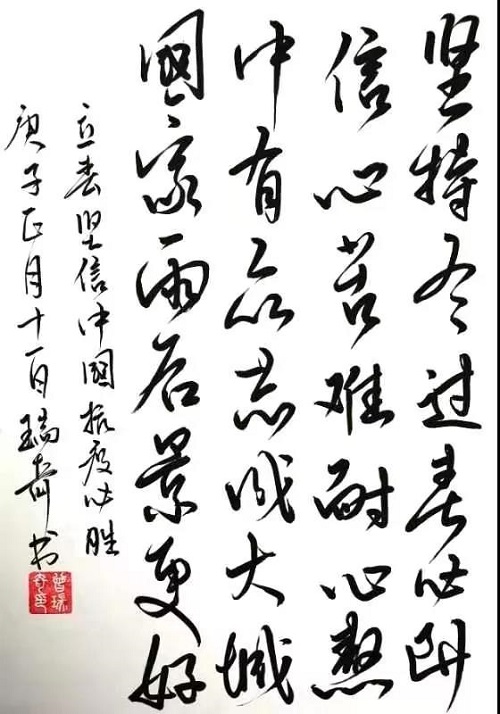 坚持冬过春必到
信心苦难耐心熬
中有众志成大城
國家雨后景更好
立春坚信中國抗疫必胜
庚子正月十一日瑞奇书